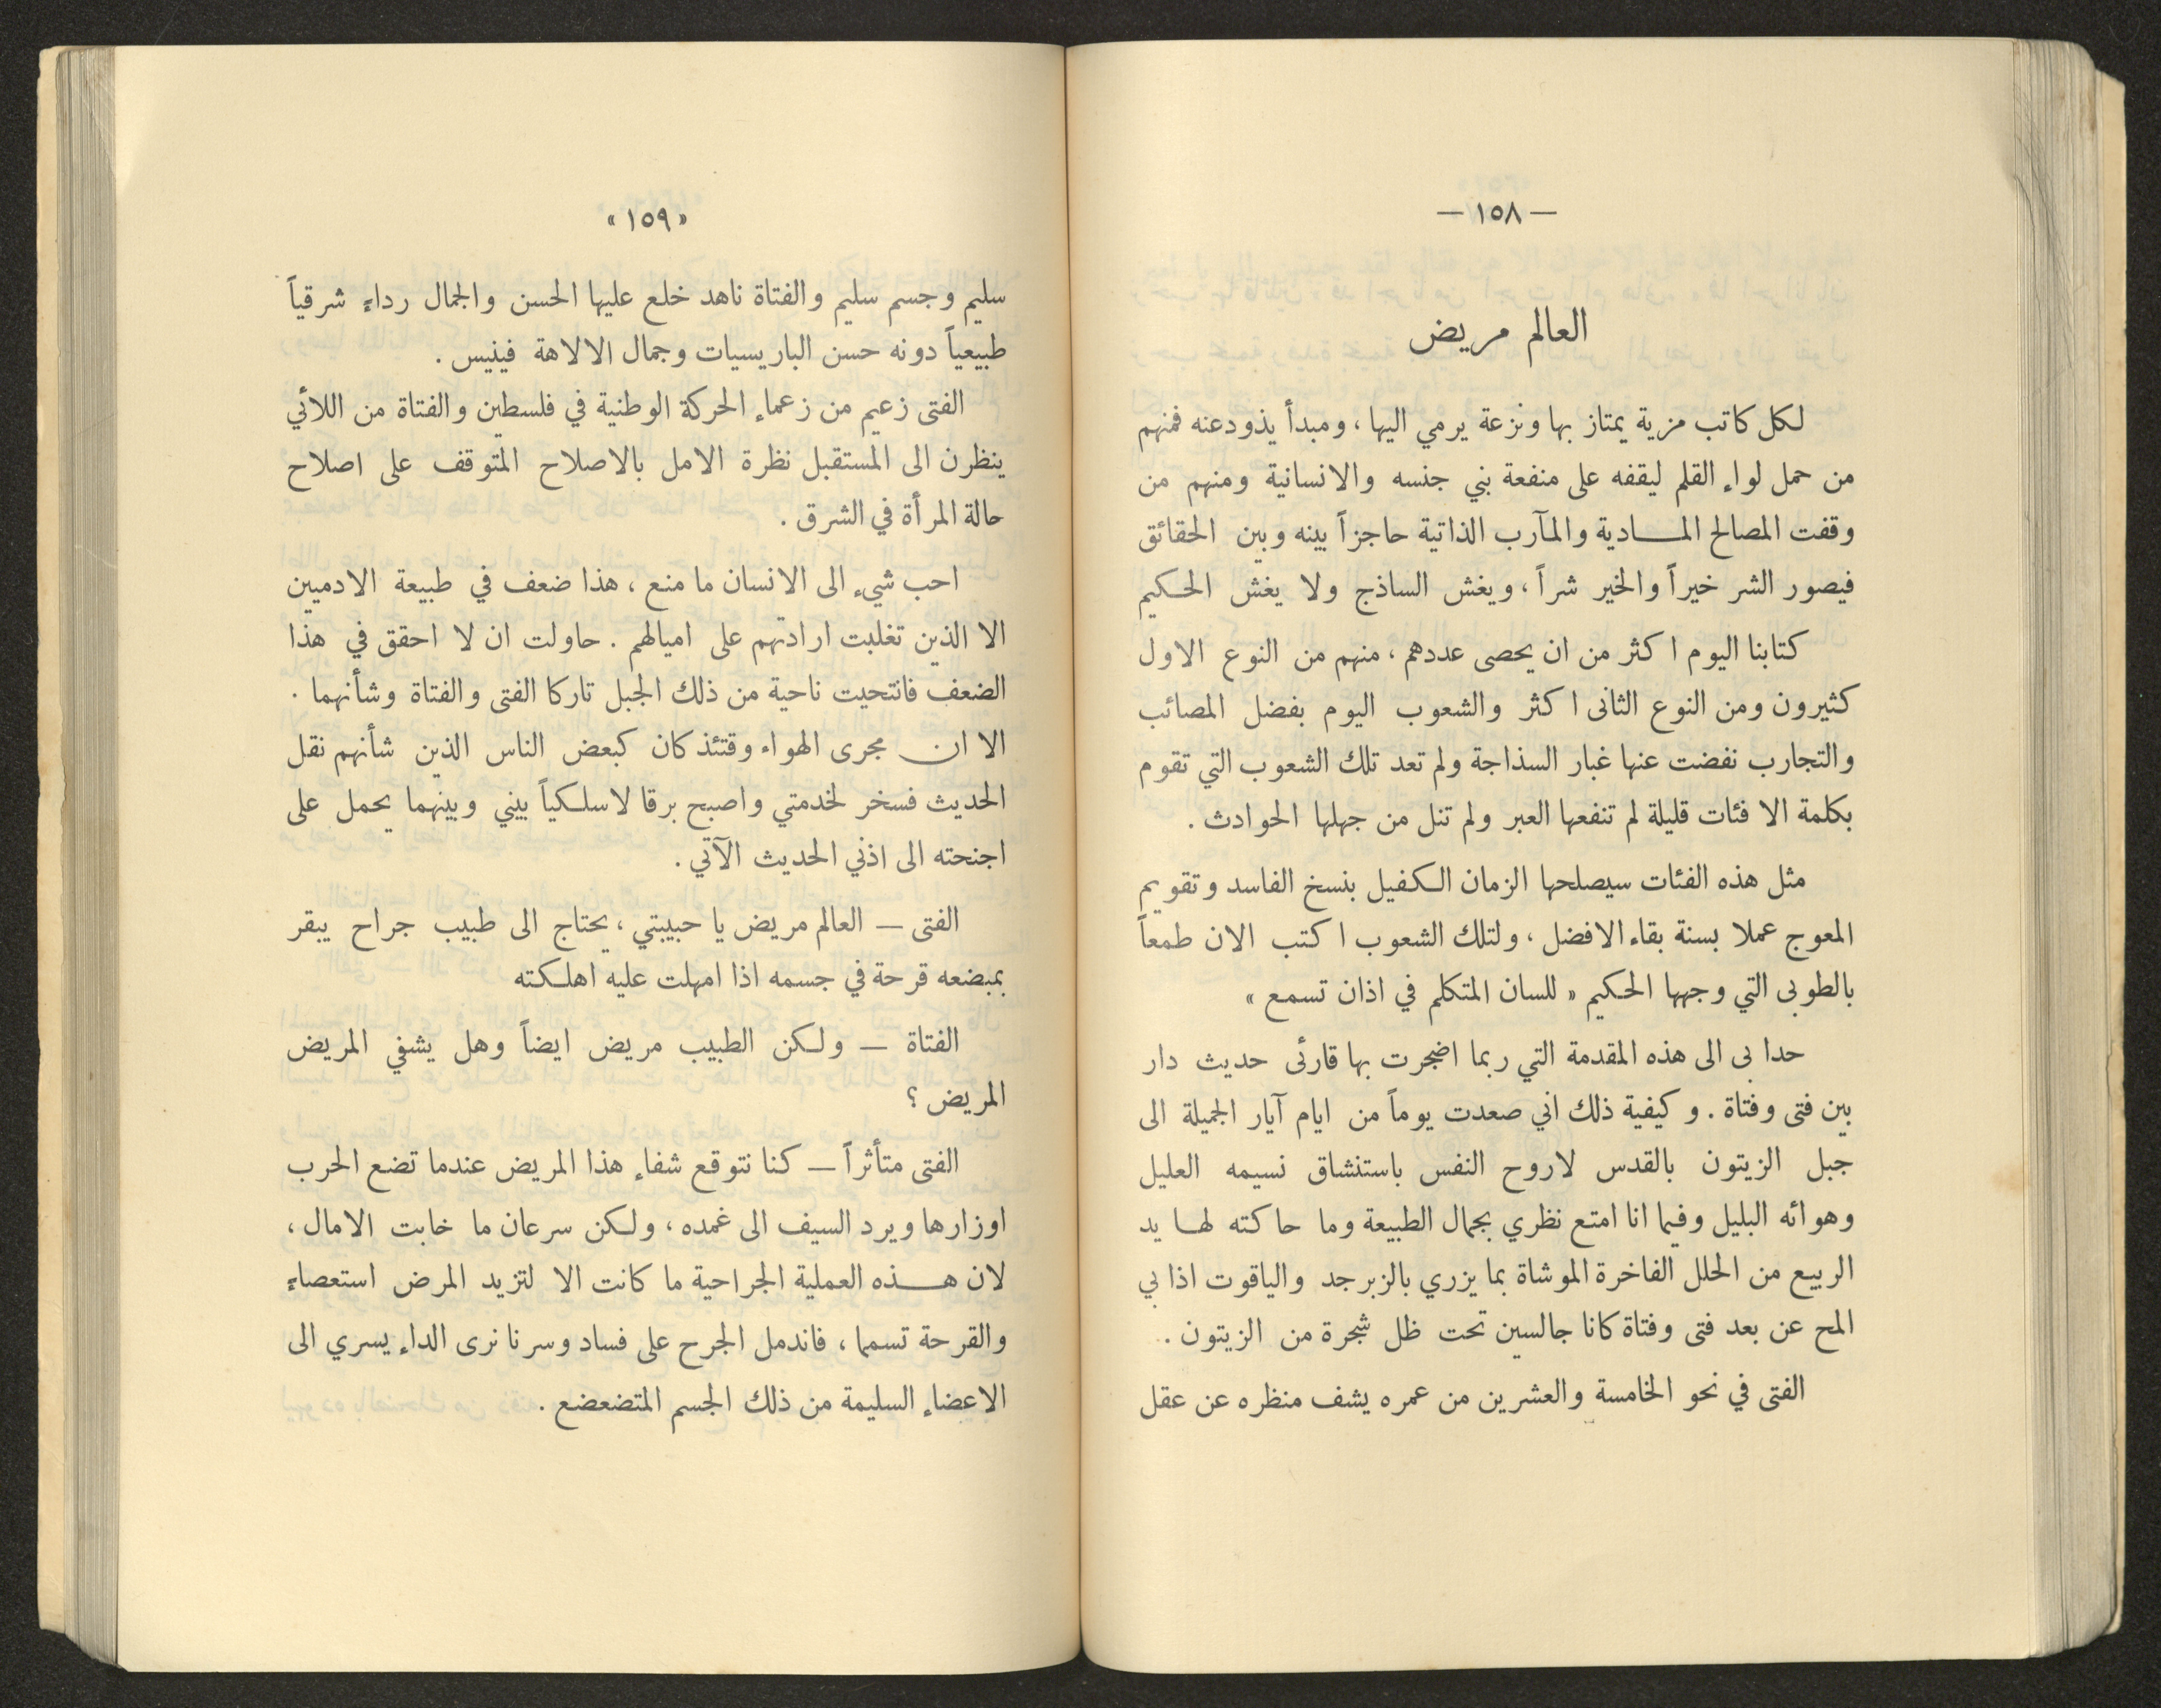 — ١٥٨ —
العالم مريض
لكل كاتب مزية يمتاز بها ونزعة يرمي اليها ، ومبدأ يذود عنه فمنهم
من حمل لواء القلم ليقفه على منفعة بني جنسه والانسانية ومنهم من
وقفت المصالح المادية والمآرب الذاتية حاجزاً بينه وبين الحقائق
فيصور الشر خيراً والخير شراً ، ويغش الساذج ولا يغش الحكيم
كتابنا اليوم اكثر من ان يحصى عددهم ، منهم من النوع الاول
كثيرون ومن النوع الثانى اكثر والشعوب اليوم بفضل المصائب
والتجارب نفضت عنها غبار السذاجة ولم تعد تلك الشعوب التي تقوم
بكلمة الا فئات قليلة لم تنفعها العبر ولم تنل من جهلها الحوادث .
مثل هذه الفئات سيصلحها الزمان الكفيل بنسخ الفاسد وتقويم
المعوج عملا بسنة بقاء الافضل ، ولتلك الشعوب اكتب الان طمعاً
بالطوبى التي وجهها الحكيم « للسان المتكلم في اذان تسمع »
حدا بى الى هذه المقدمة التي ربما اضجرت بها قارئى حديث دار
بين فتى وفتاة . وكيفية ذلك اني صعدت يوماً من ايام آيار الجميلة الى
جبل الزيتون بالقدس لاروح النفس باستنشاق نسيمه العليل
وهوائه البليل وفيما انا امتع نظري بجمال الطبيعة وما حاكته لها يد
الربيع من الحلل الفاخرة الموشاة بما يزري بالزبرجد والياقوت اذا بي
المح عن بعد فتى وفتاة كانا جالسين تحت ظل شجرة من الزيتون .
الفتى في نحو الخامسة والعشرين من عمره يشف منظره عن عقل
« ١٥٩ »
سليم وجسم سليم والفتاة ناهد خلع عليها الحسن والجمال رداءٍ شرقياً
طبيعياً دونه حسن الباريسيات وجمال الالاهة فينيس .
الفتى زعيم من زعماء الحركة الوطنية في فلسطين والفتاة من اللائي
ينظرن الى المستقبل نظرة الامل بالاصلاح المتوقف على اصلاح
حالة المرأة في الشرق .
احب شيء الى الانسان ما منع ، هذا ضعف في طبيعة الادميين
الا الذين تغلبت ارادتهم على اميالهم . حاولت ان لا احقق في هذا
الضعف فانتحيت ناحية من ذلك الجبل تاركا الفتى والفتاة وشأنهما .
الا ان مجرى الهواء وقتئذ كان كبعض الناس الذين شأنهم نقل
الحديث فسخر لخدمتي واصبح برقا لاسلكياً بيني وبينهما يحمل على
اجنحته الى اذني الحديث الآتي .
الفتى — العالم مريض يا حبيبتي ، يحتاج الى طبيب جراح يبقر
بمبضعه قرحة في جسمه اذا امهلت عليه اهلكته
الفتاة — ولكن الطبيب مريض ايضاً وهل يشفي المريض
المريض ؟
الفتى متأثراً — كنا نتوقع شفاء هذا المريض عندما تضع الحرب
اوزارها ويرد السيف الى غمده ، ولكن سرعان ما خابت الامال ،
لان هذه العملية الجراحية ما كانت الا لتزيد المرض استعصاءٍ
والقرحة تسمما ، فاندمل الجرح على فساد وسرنا نرى الداء يسري الى
الاعضاء السليمة من ذلك الجسم المتضعضع .